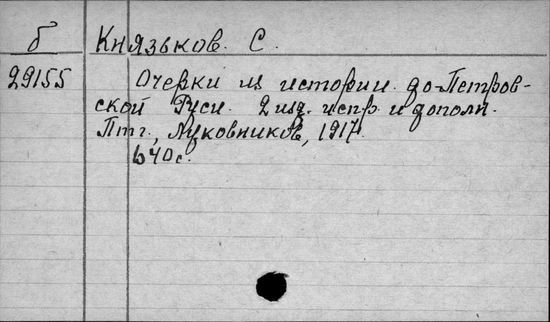 б Князьков. С.
29155 Очерки из истории до-Петров-
ской Руси. 2 изд. испр. и дополн.
Птг., Луковников, 1917.
640 с.